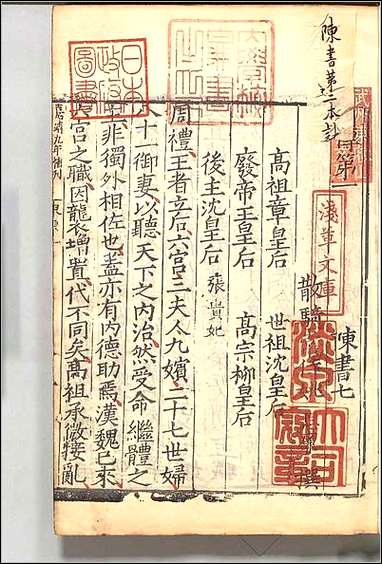 陳書第一本
傳第一
陳書七
散騎
撰
高祖章皇后
世祖沈皇后
廢帝王皇后
高宗柳皇后
後主沈皇后
張貴妃
周禮王者立后六宮三夫人九嬪二十七世婦
八十一御妻以聽天下之內治然受命繼體之
主非獨外相佐也蓋亦有內德助焉漢魏已來
六宮之職因襲增置代不同矣高祖承微接亂
淺草文庫
日本
政府
圖書
嘉靖九年補刊